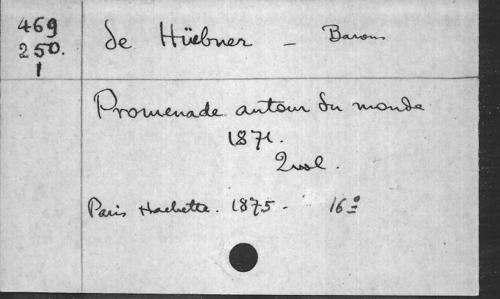 469
250.
1
de Hüebner - Baron
Promenade autour du monde
1871.
2 vol.
Paris Hachette. 1875 - 16º